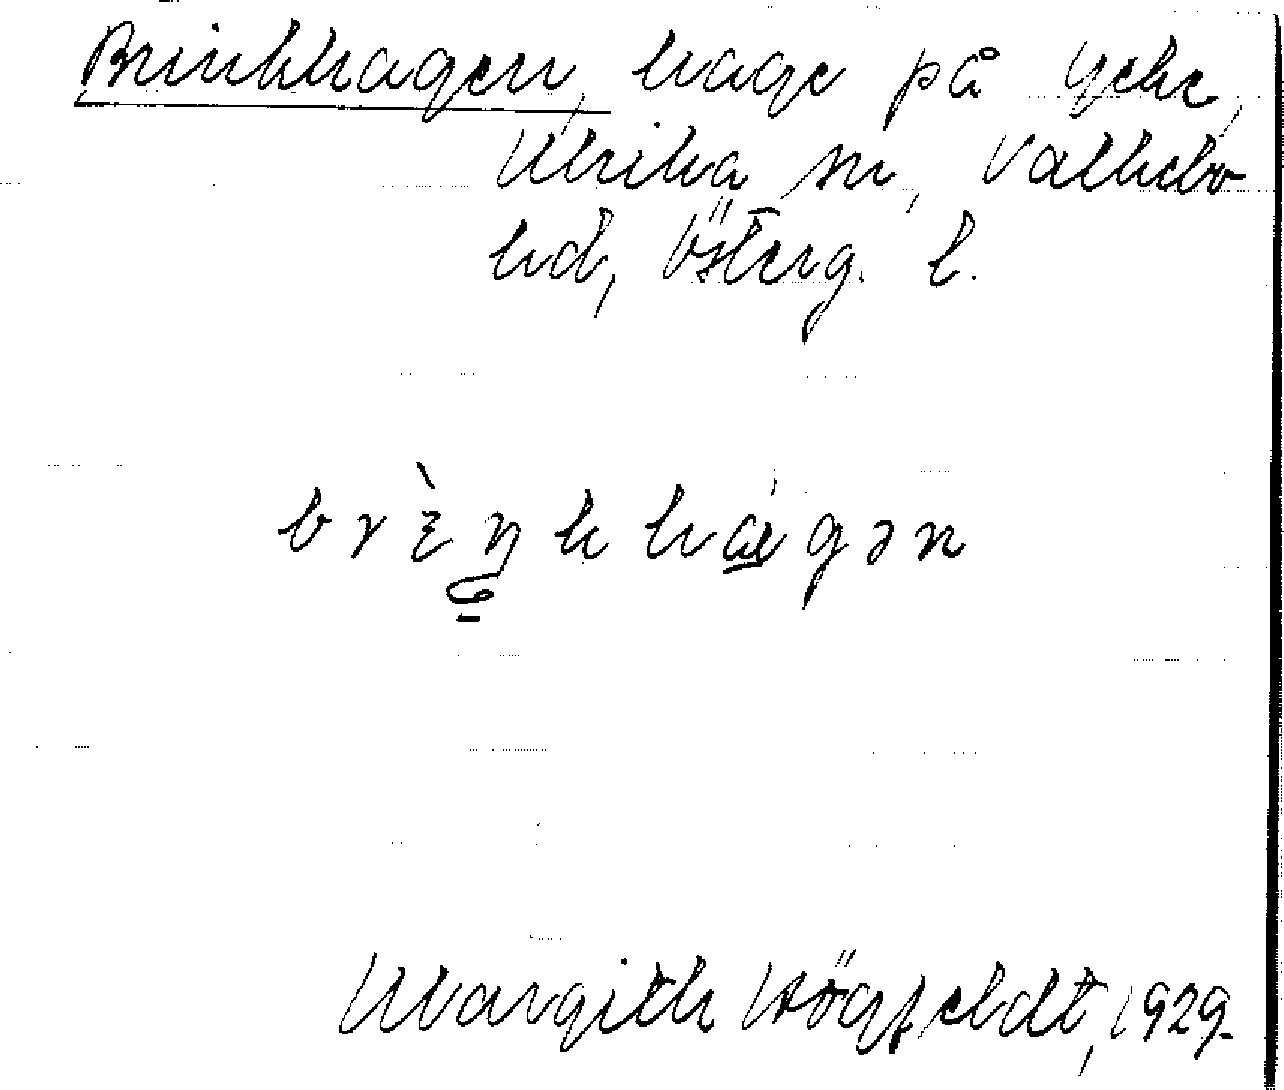 Brinkhagen, hage på Yeke,
Ulrika sn, Valkebo
hd, Österg. l.
brèŋkhágən
Margith Högfeldt, 1929.